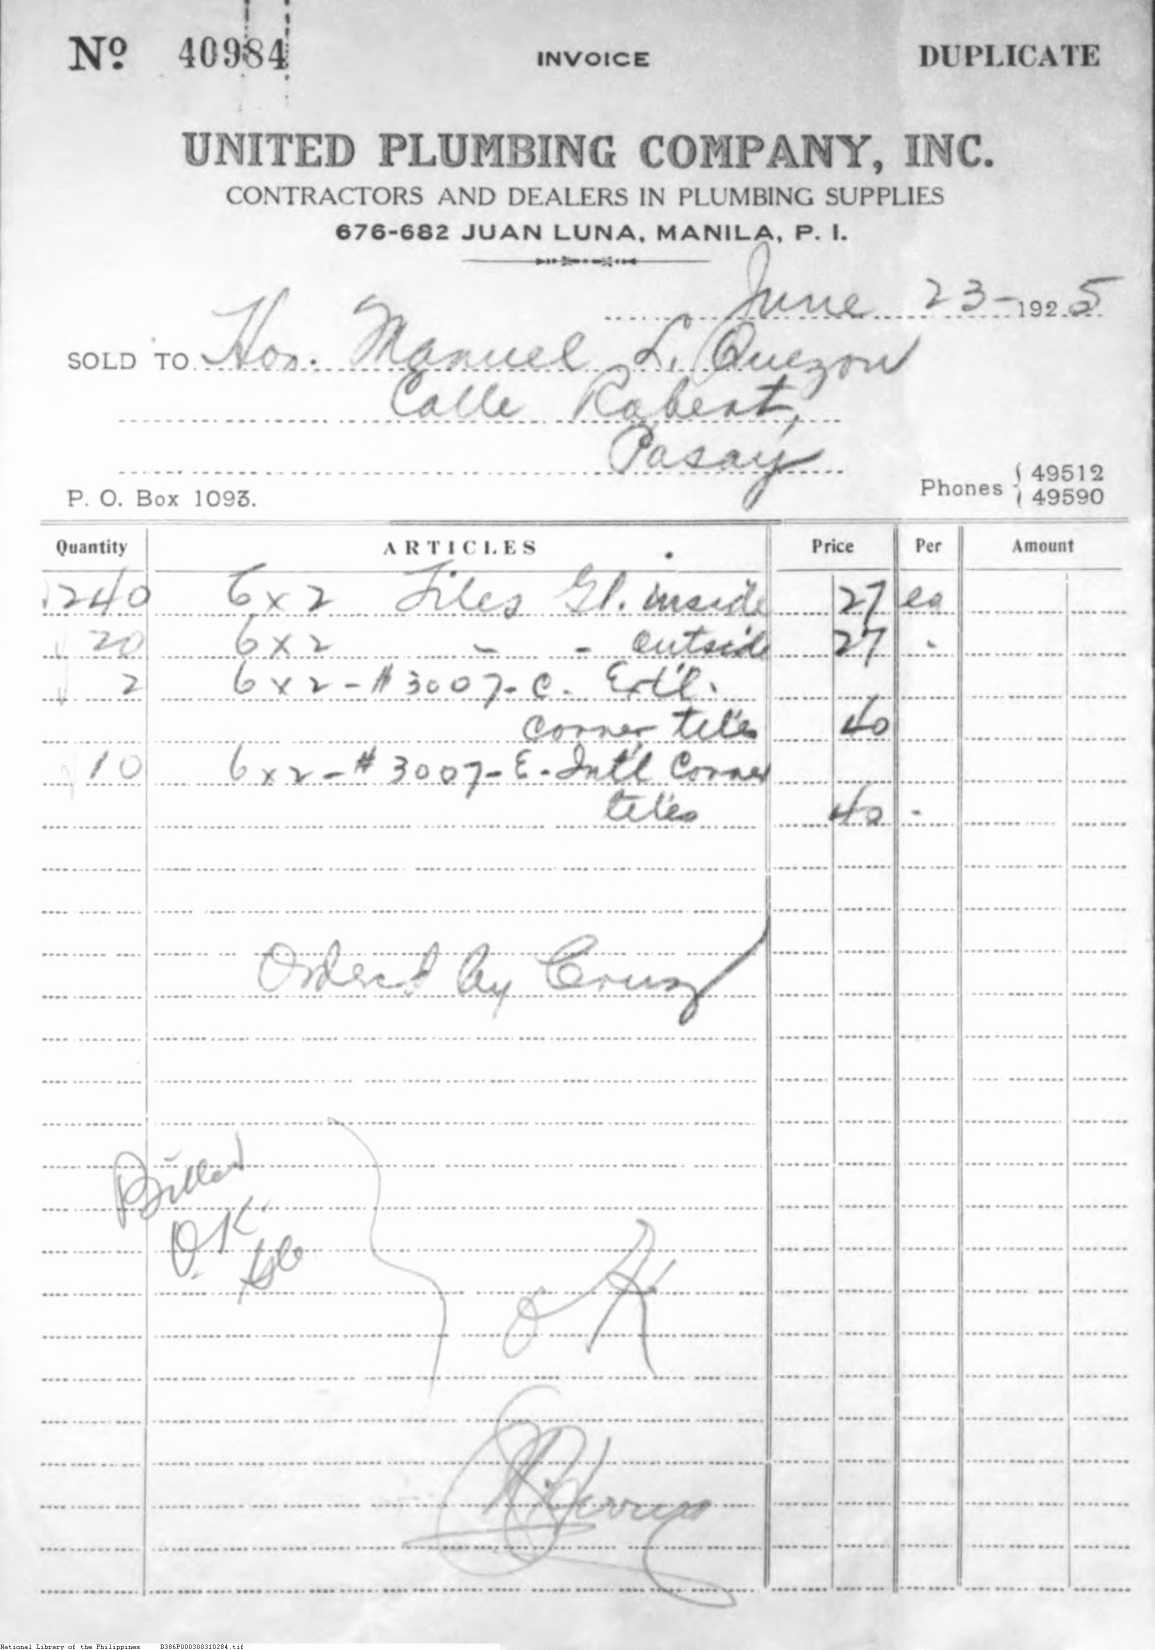 Nº 40984 INVOICE DUPLICATE
UNITED PLUMBING COMPANY, INC.
CONTRACTORS AND DEALERS IN PLUMBING SUPPLIES
676-682 JUAN LUNA, MANILA, P. I.
June 23- 1925
SOLD TO Hon. Manuel L. Quezon
Calle Robert,
Pasay
P. O. Box 1093. Phones { 49512
49590
Quantity ARTICLES Price Per Amount
240 6 x 2 Tiles Gl. inside 27 ea
20 6 x 2 - - outside 27 -
2 6 x 2 - # 3007 - C. Ext'l.
corner tiles 40
10 6 x 2 - # 3007 - E - Int'l Corner
tiles 40 -
Ordered by Cruz
Billed
O.K.
OK
National Library of the Philippines B386P000300310284.tif